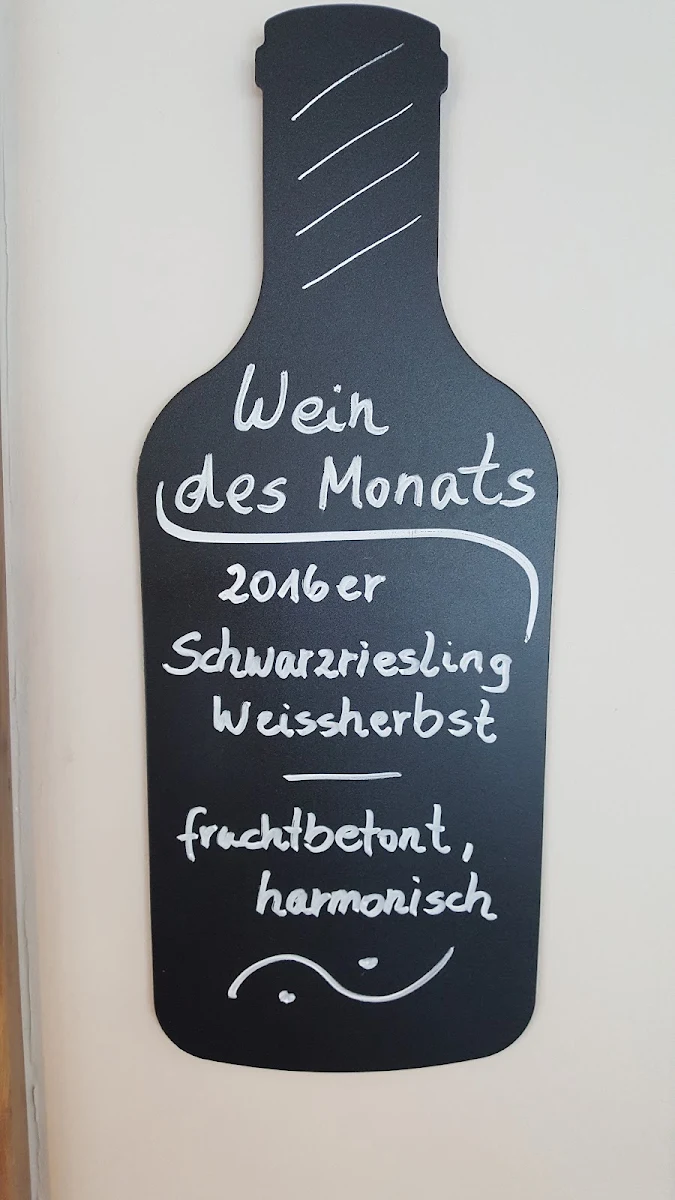 Wein
des Monats
2016er
Schwarzriesling
Weissherbst
fruchtbetont,
harmonisch